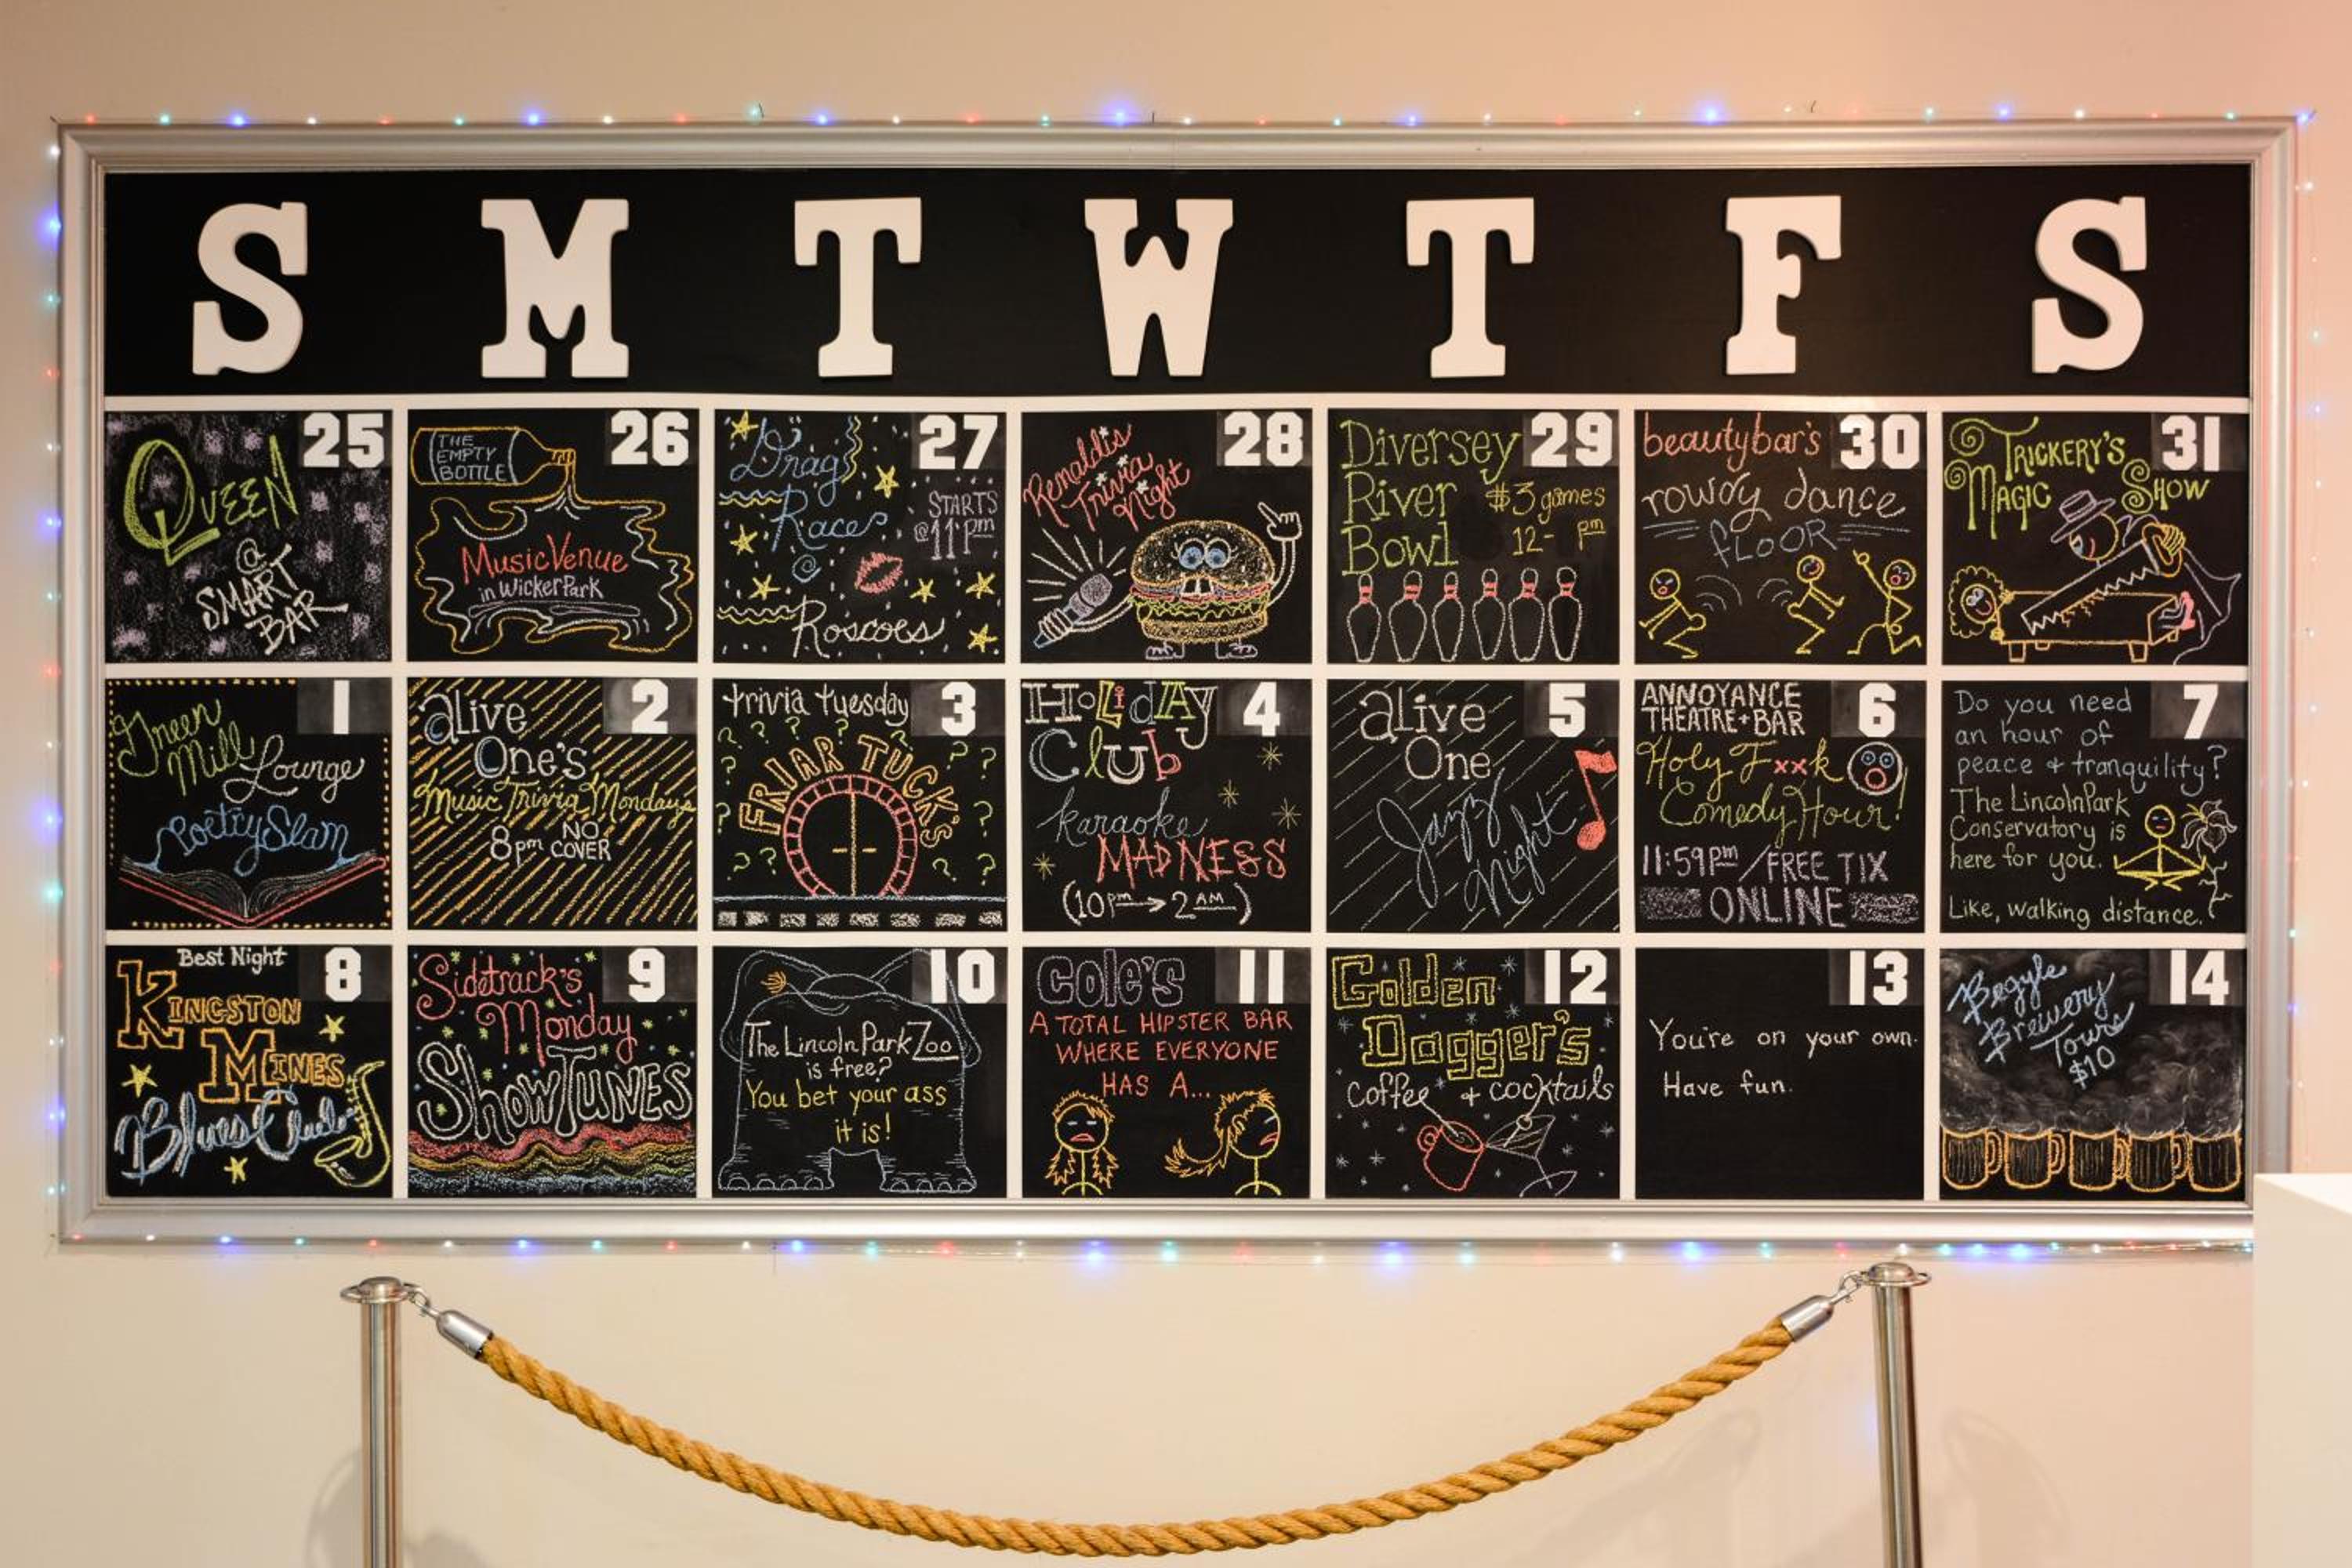 S M T W T F S
25
QUEEN
@
SMART
BAR
26
THE
EMPTY
BOTTLE
Music Venue
in Wicker Park
27
Drag
Races
STARTS
@ 11pm
Roscoes
28
Renaldi's
Trivia
Night
29
Diversey
River
Bowl
$3 games
12- pm
30
beautybar's
rowdy dance
FLOOR
31
TRICKERY'S
MAGIC SHOW
1
Green
Mill Lounge
Poetry Slam
2
alive
One's
Music Trivia Mondays
8pm NO COVER
3
trivia tuesday
FRIAR TUCK'S
4
HOLiDAY
Club
karaoke
MADNESS
(10pm → 2AM)
5
alive
One
Jazz
Night
6
ANNOYANCE
THEATRE + BAR
Holy Fxxk
Comedy Hour!
11:59pm / FREE TIX
ONLINE
7
Do you need
an hour of
peace + tranquility?
The Lincoln Park
Conservatory is
here for you.
Like, walking distance.
8
Best Night
KINGSTON
MINES
Blues Club
9
Sidetrack's
Monday
SHOWTUNES
10
The Lincoln Park Zoo
is free?
You bet your ass
it is!
11
COLE'S
A TOTAL HIPSTER BAR
WHERE EVERYONE
HAS A...
12
Golden
Dagger's
coffee + cocktails
13
You're on your own.
Have fun.
14
Begyle
Brewery
Tours
$10